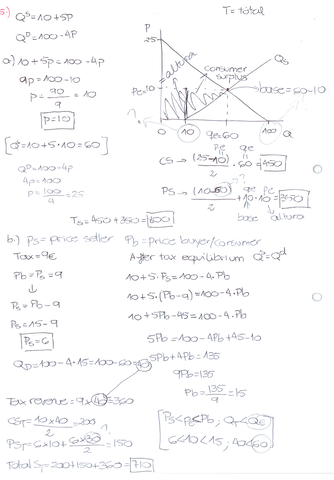 5.)
Q^S = 10+5P
Q^D = 100-4P
T = total
a) 10+5P = 100-4P
9P = 100-10
P = 90/9 = 10
P=10
Q = 10+5·10 = 60
Q^D = 100-4P
4P = 100
P = 100/4 = 25
P
25
Pe=10
altura
consumer surplus
Qs
base = 60-10
?
0
10
qe=60
100
Q
CS → (25-10)/2 · 60 = 450
PS →
+ 10·10 = 350
base
altura
Ts = 450+350 = 800
b.) Ps = price seller Pb = price buyer/consumer
Tax = 9€
After tax equilibrium Q^S = Q^d
Pb - Ps = 9
↓
Ps = Pb - 9
Ps = 15-9
Ps = 6
10+5·Ps = 100-4·Pb
10+5·(Pb-9) = 100-4·Pb
10+5Pb-45 = 100-4·Pb
5Pb = 100-4Pb+45-10
5Pb+4Pb = 135
9Pb = 135
Pb = 135/9 = 15
QD = 100-4·15 = 100-60 = 40
Tax revenue = 9×40 = 360
CST = 10×40/2 = 200
PST = 6×10 + 6×30/2 = 150
Total S = 200+150+360 = 710
Ps<Pe<Pb, QT<Qe
6<10<15, 40<60